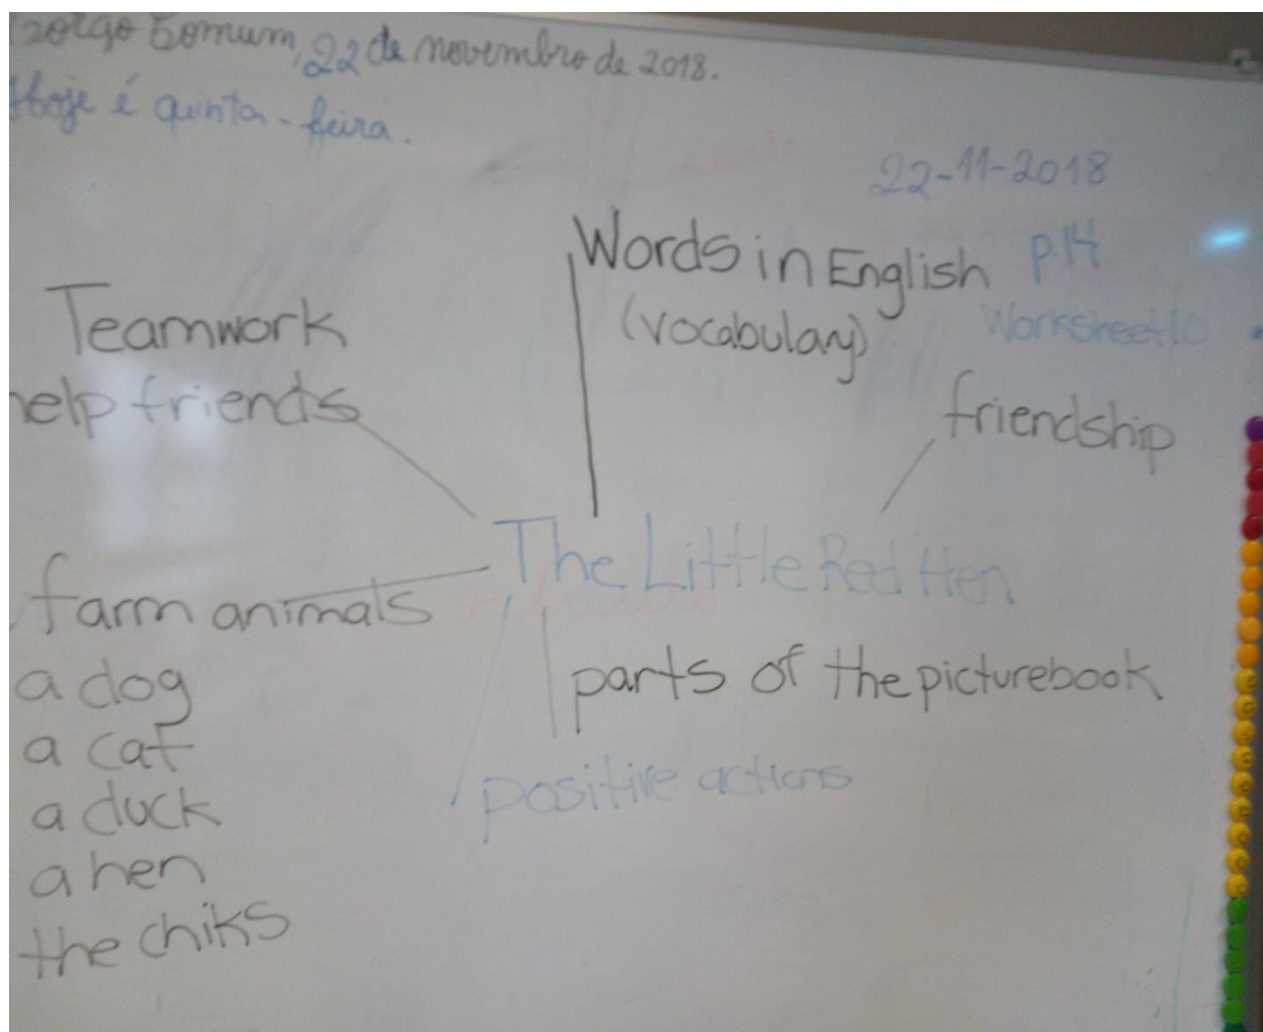 Comum, 22 de novembro de 2018.
Hoje é quinta-feira.
22-11-2018
Words in English
p.14
(vocabulary)
Worksheet 10
Teamwork
help friends
friendship
The Little Red Hen
farm animals
a dog
a cat
a duck
a hen
the chiks
parts of the picturebook
positive actions